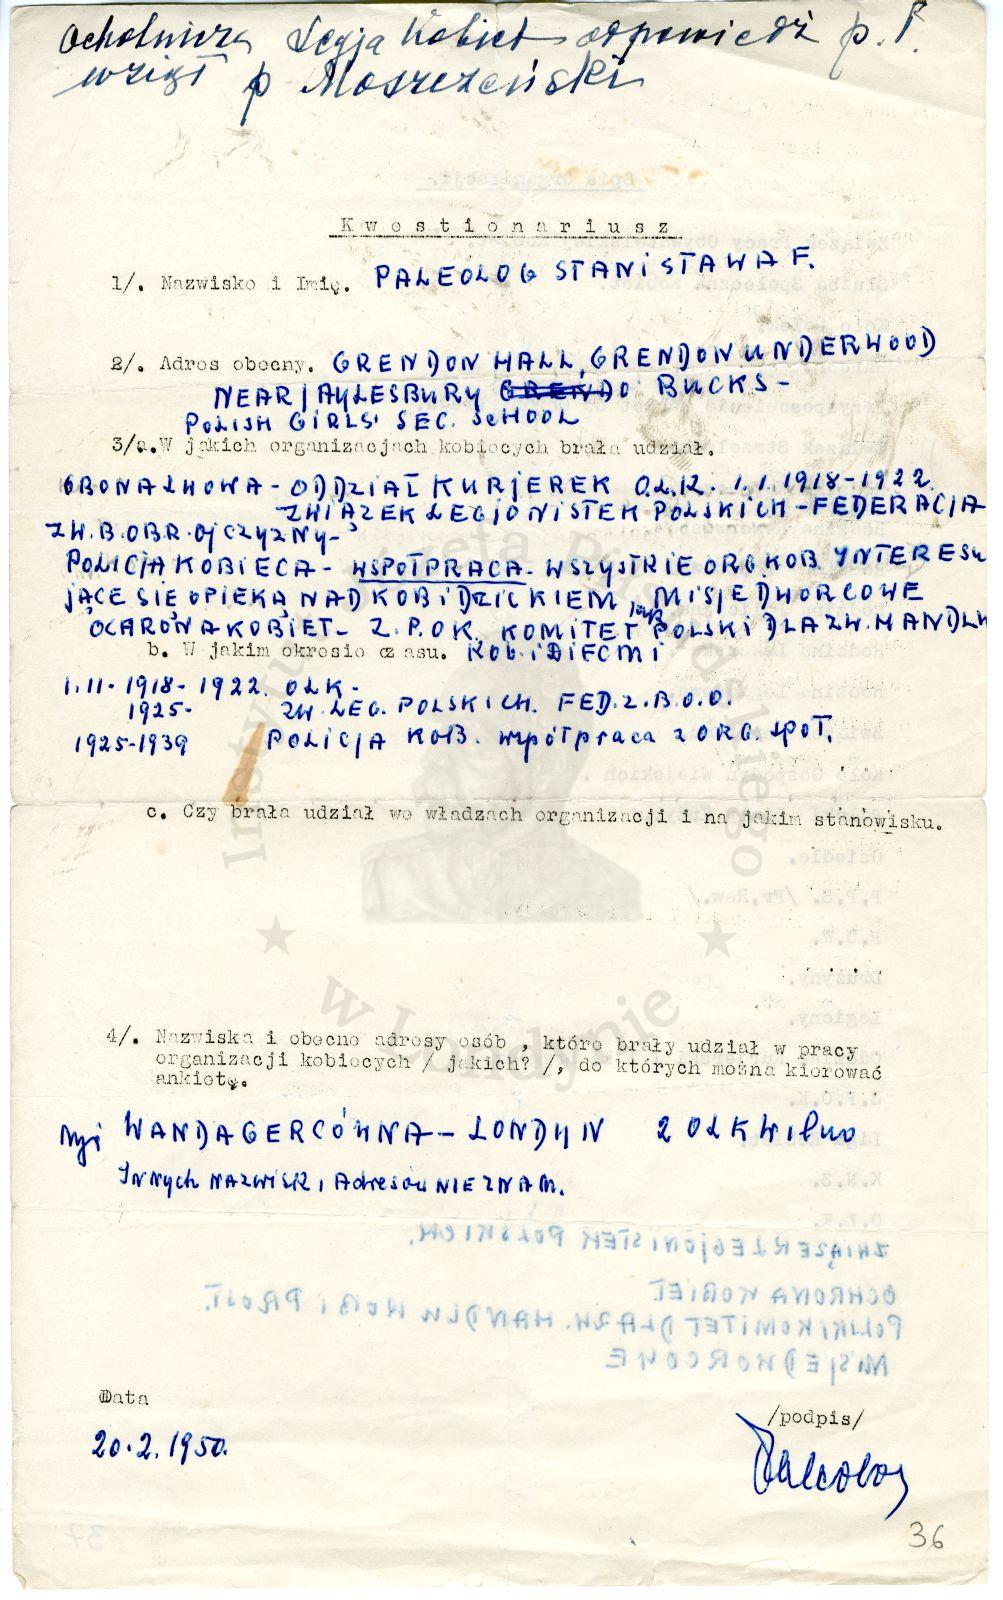 Ochotnicza Legja Kobiet odpowiedź p. P.
wziął p Moszczeński
Kwestionariusz
1/. Nazwisko i Imię. PALEOLOG STANISŁAWA F.
2/. Adres obecny. GRENDON HALL, GRENDON UNDERWOOD
NEAR/AYLESBURY BUCKS-
POLISH GIRLS' SEC. SCHOOL
3/a. W jakich organizacjach kobiecych brała udział.
ODDZIAŁ KURJEREK O.L.K. 1.1.1918-1922.
ZWIĄZEK LEGJONISTEK POLSKICH-FEDERACJA
ZW.B.OBR.OJCZYZNY-
POLICJA KOBIECA-WSPÓŁPRACA-WSZYSTKIE ORG KOB. YNTERESU
JĄCE SIĘ OPIEKĄ NAD KOB i DZIECKIEM, MISJE DWORCOWE
OCHRONA KOBIET- Z.P.OK. KOMITET POLSKI DLA ZW. HANDLU
b. W jakim okresie czasu. KOB. i DIEĆMI
1.11-1918-1922. OŁK-
1925- ZW.LEG. POLSKICH. FED.Z.B.O.O.
1925-1939 POLICJA KOB. współpraca z ORG. SPOŁ.
c. Czy brała udział we władzach organizacji i na jakim stanowisku.
4/. Nazwiska i obecne adresy osób , które brały udział w pracy
organizacji kobiecych / jakich? /, do których można kierować
ankietę.
WANDA GERCÓWNA-LONDYN z OŁK Wilno
Innych NAZWISK i Adresów NIE ZNAM.
ZWIĄZEK LEGJONISTEK POLSKICH.
OCHRONA KOBIET
POLSKI KOMITET DLA ZW. HANDLU KOB i PROST.
MISJE DWORCOWE
Data
/podpis/
20.2.1950.
Paleolog
36
37
Instytut Józefa Piłsudskiego
w Londynie